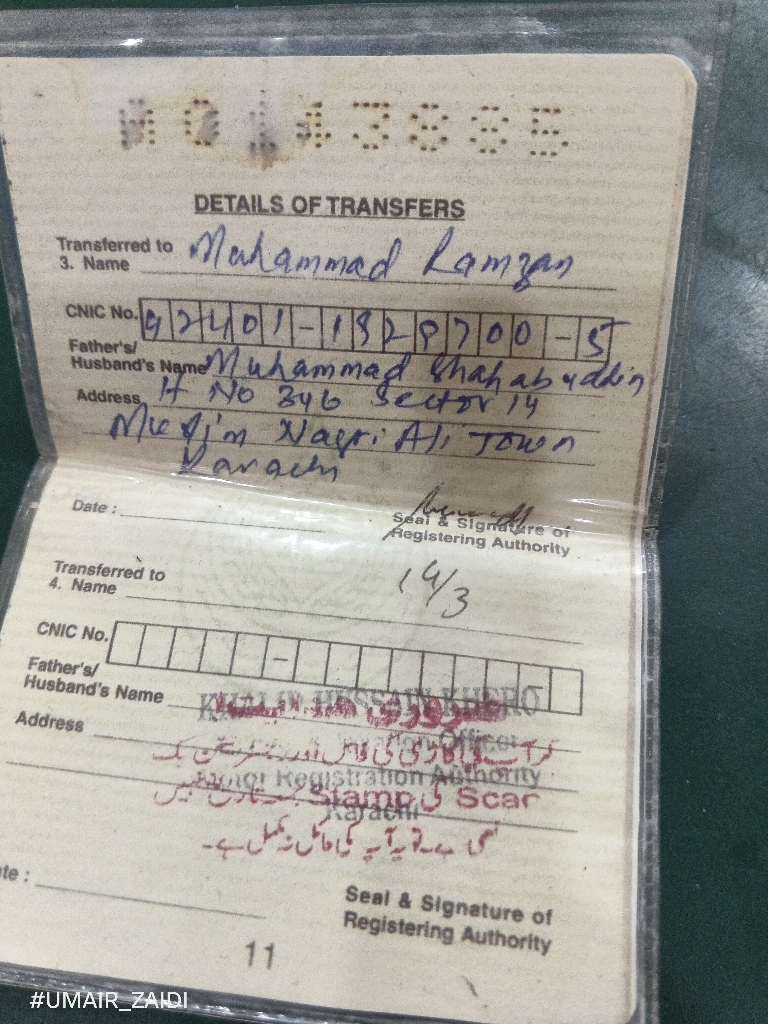 DETAILS OF TRANSFERS
Transferred to
3. Name Muhammad Ramzan
CNIC No. 42401-1829700-5
Father's/
Husband's Name Muhammad Shahabuddin
Address H No 346 Sector 14
Muslim Nagri Ali Town
Karachi
Date :
Seal & Signature of
Registering Authority
14/3
Transferred to
4. Name
CNIC No.
Father's/
Husband's Name
KHALID HUSSAIN KHERO
ضروری ہدایت
Address
Motor Registration Authority
Stamp کی Scan
Karachi
ہے تو یہ آپ کی فائل نامکمل ہے۔
te :
Seal & Signature of
Registering Authority
11
#UMAIR_ZAIDI